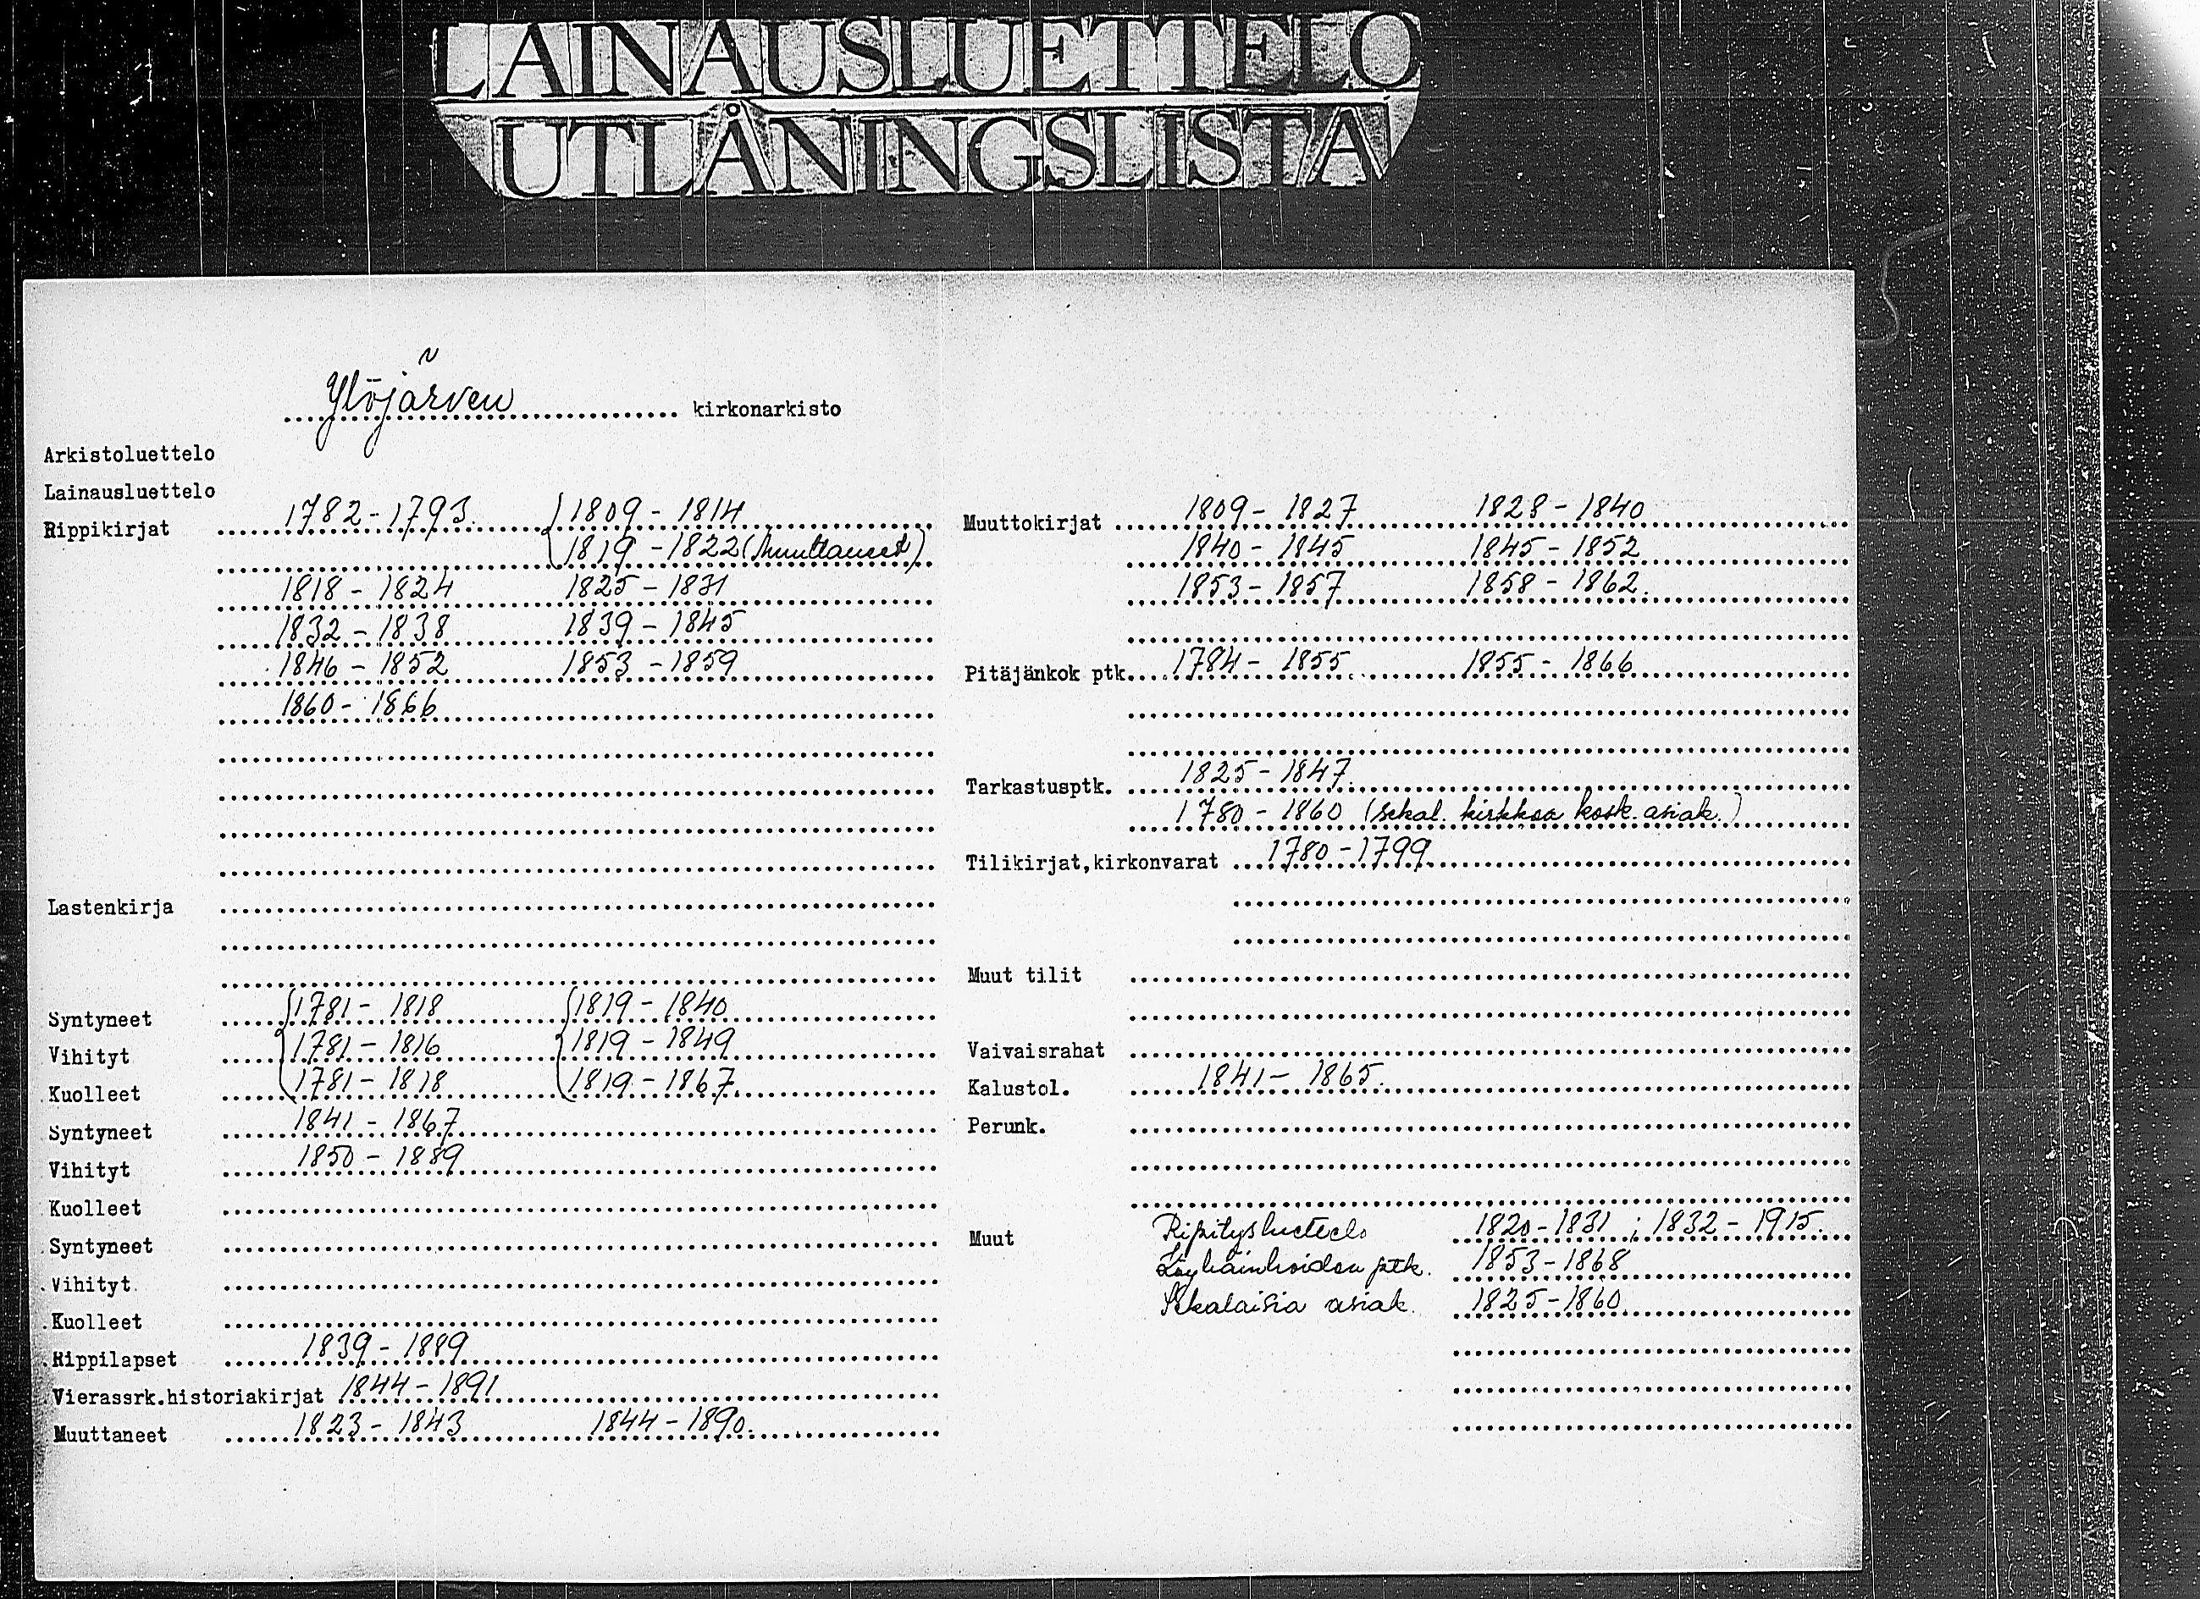 LAINAUSLUETTELO
UTLÅNINGSLISTA
Ylöjärven kirkonarkisto
Arkistoluettelo
Lainausluettelo
Rippikirjat 1782-1793 1809 - 1814
1819 - 1822 (Muuttaneet)
1818 - 1824 1825 - 1831
1832 - 1838 1839 - 1845
1846 - 1852 1853 - 1859
1860 - 1866
Lastenkirja
Syntyneet 1781 - 1818 1819 - 1840
Vihityt 1781 - 1816 1819 - 1849
Kuolleet 1781 - 1818 1819 - 1867
Syntyneet 1841 - 1867
Vihityt 1850 - 1889
Kuolleet
Syntyneet
Vihityt
Kuolleet
Rippilapset 1839 - 1889
Vierassrk.historiakirjat 1844 - 1891
Muuttaneet 1823 - 1843 1844 - 1890
Muuttokirjat 1809 - 1827 1828 - 1840
1840 - 1845 1845 - 1852
1853 - 1857 1858 - 1862
Pitäjänkok ptk. 1784 - 1855 1855 - 1866
Tarkastusptk. 1825 - 1847
1780 - 1860 (sekal. kirkkoa kosk. asiak.)
Tilikirjat,kirkonvarat 1780 - 1799
Muut tilit
Vaivaisrahat
Kalustol. 1841 - 1865
Perunk.
Muut Ripitysluettelo 1820-1831 ; 1832 - 1915
Köyhäinhoidon ptk. 1853 - 1868
Sekalaisia asiak. 1825 - 1860